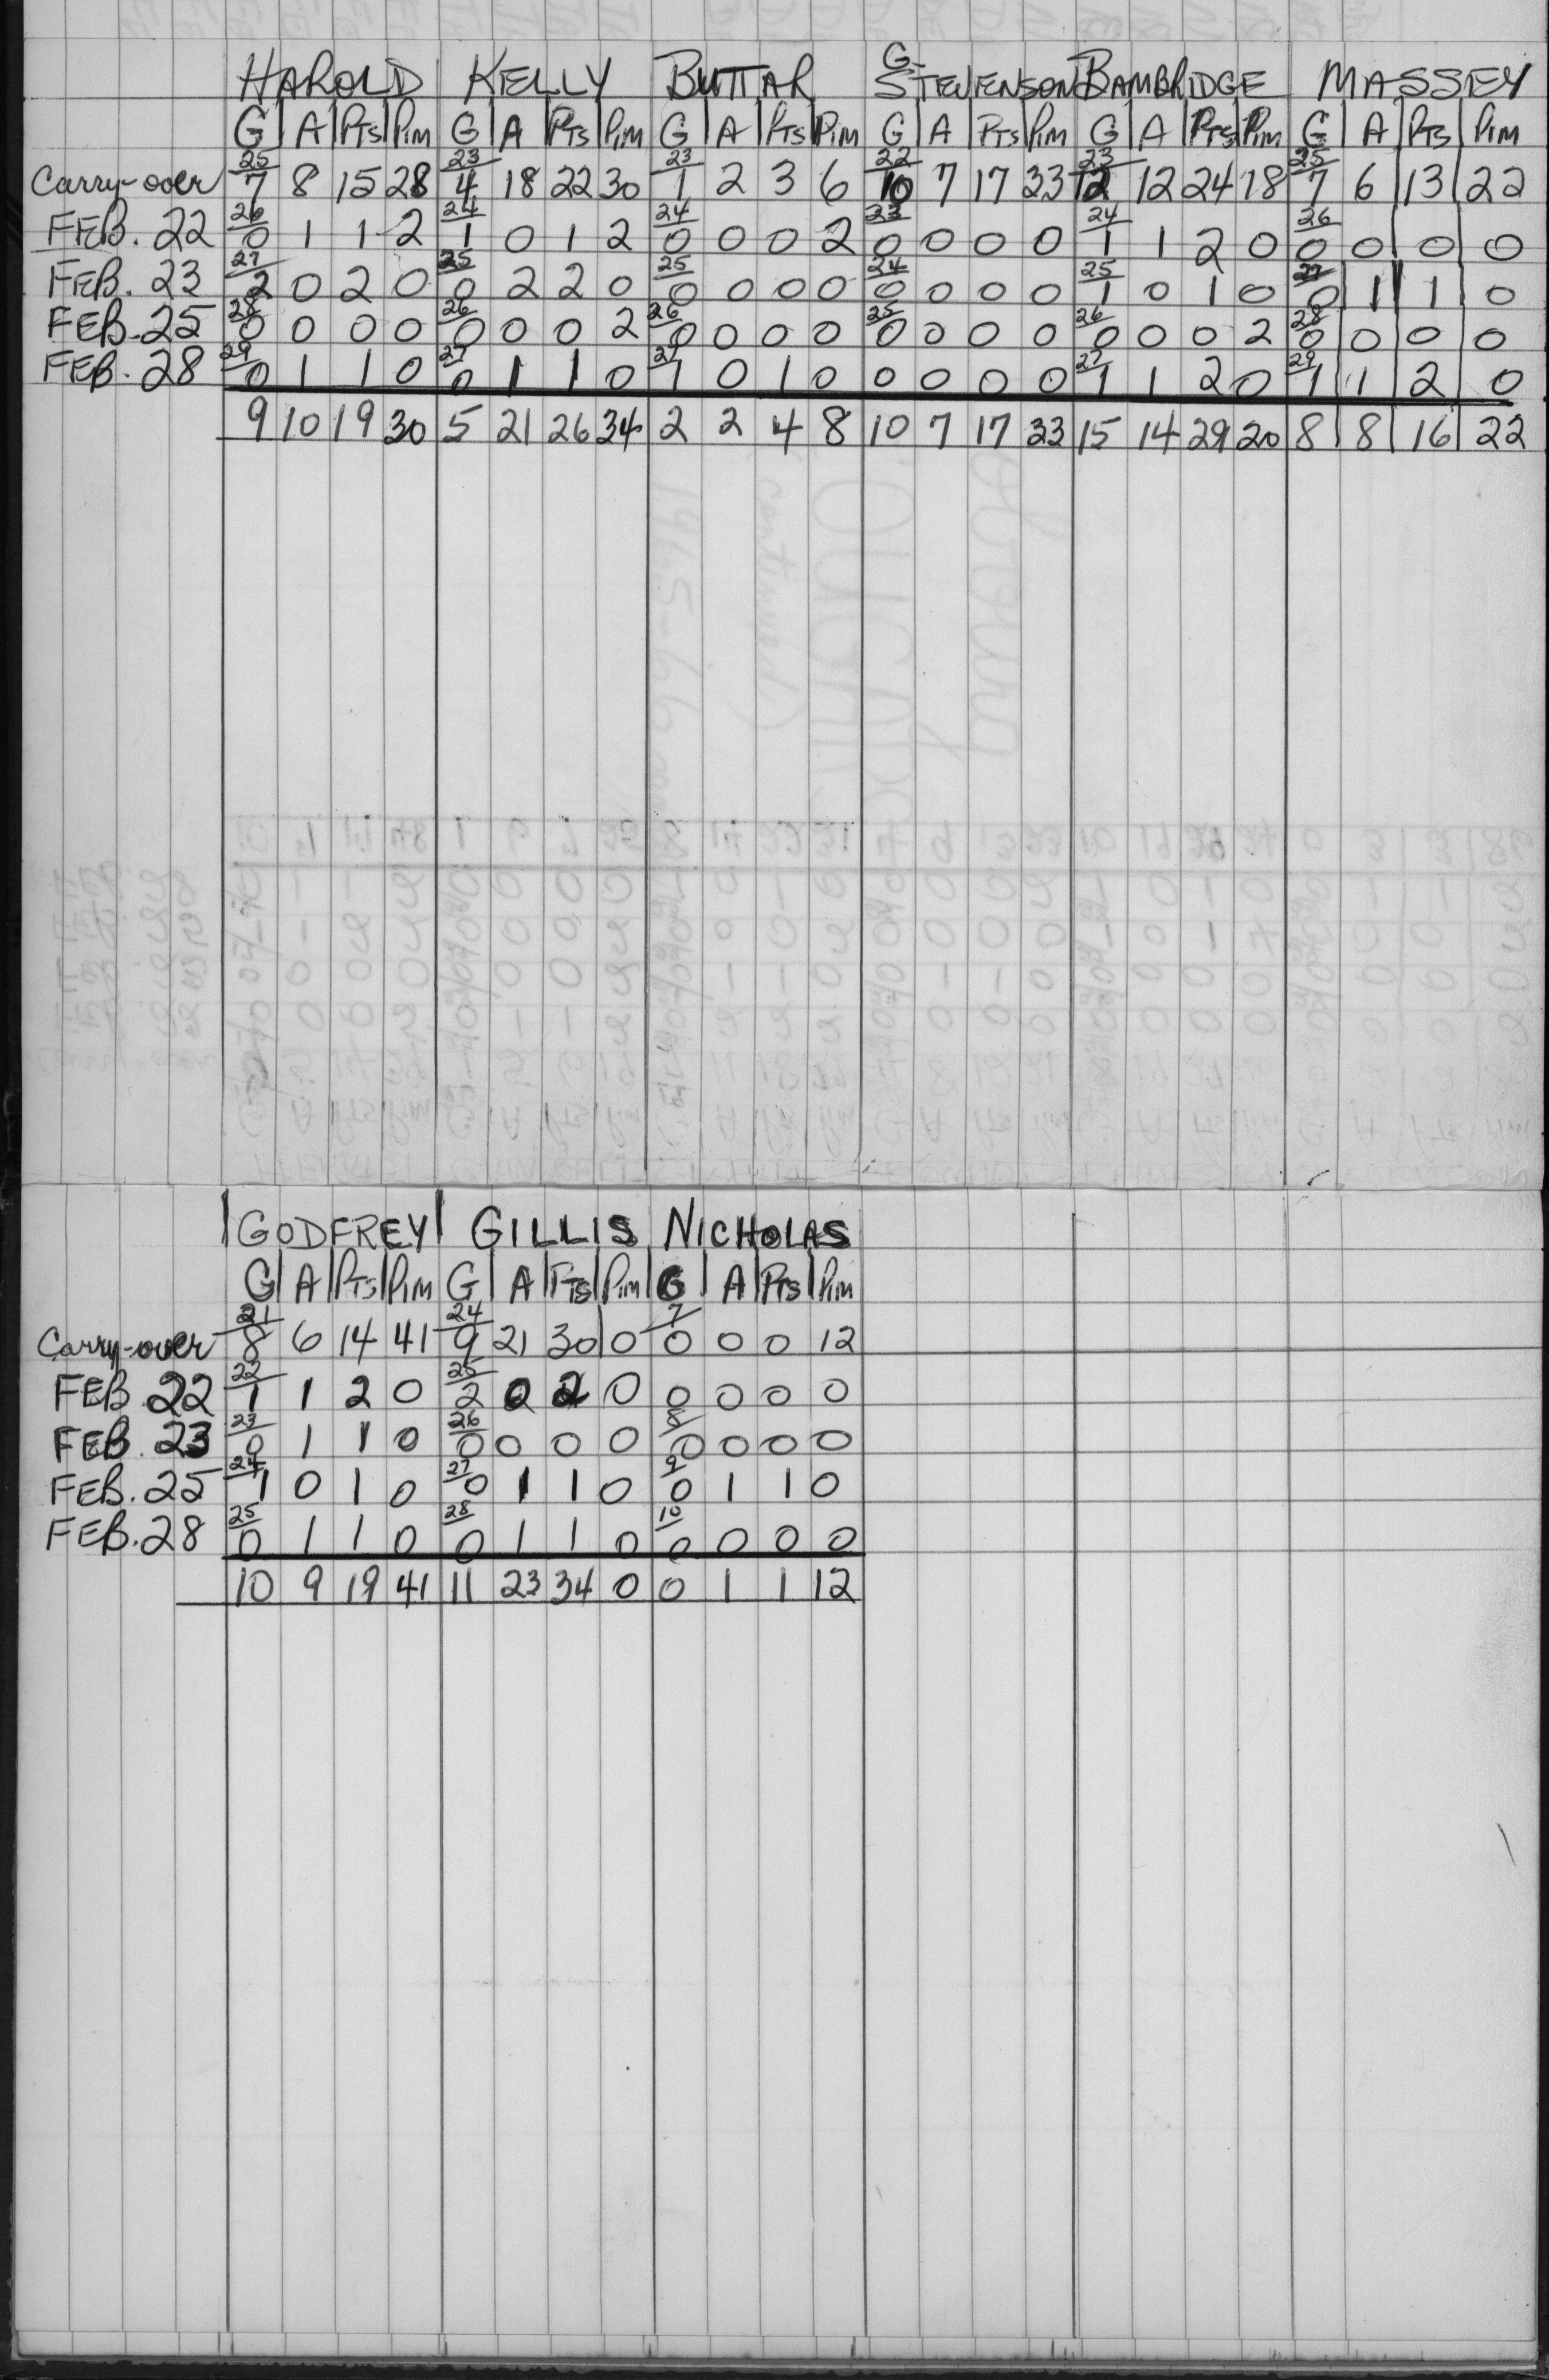 HAROLD KELLY BUTTAR G. STEVENSON BAMBRIDGE MASSEY
G A PTS Pim G A PTS Pim G A PTS Pim G A PTS Pim G A PTS Pim G A PTS Pim
25 23 23 22 23 25
Carry-over 7 8 15 28 4 18 22 30 1 2 3 6 10 7 17 33 12 12 24 18 7 6 13 22
26 24 24 23 24 26
FEB. 22 0 1 1 2 1 0 1 2 0 0 0 2 0 0 0 0 1 1 2 0 0 0 0 0
27 25 25 24 25 27
FEB. 23 2 0 2 0 0 2 2 0 0 0 0 0 0 0 0 0 1 0 1 0 0 1 1 0
28 26 26 25 26 28
FEB. 25 0 0 0 0 0 0 0 2 0 0 0 0 0 0 0 0 0 0 0 2 0 0 0 0
29 27 27 27 29
FEB. 28 0 1 1 0 0 1 1 0 1 0 1 0 0 0 0 0 1 1 2 0 1 1 2 0
9 10 19 30 5 21 26 34 2 2 4 8 10 7 17 33 15 14 29 20 8 8 16 22
GODFREY GILLIS NICHOLAS
G A PTS Pim G A PTS Pim G A PTS Pim
21 24 7
Carry-over 8 6 14 41 9 21 30 0 0 0 0 12
22 25
FEB. 22 1 1 2 0 2 0 2 0 0 0 0 0
23 26 8
FEB. 23 0 1 1 0 0 0 0 0 0 0 0 0
24 27 9
FEB. 25 1 0 1 0 0 1 1 0 0 1 1 0
25 28 10
FEB. 28 0 1 1 0 0 1 1 0 0 0 0 0
10 9 19 41 11 23 34 0 0 1 1 12